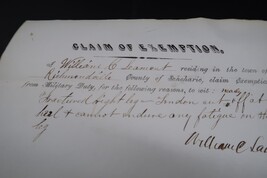 CLAIM OF EXEMPTION.
I William C residing in the town of
Richmondville County of Schoharie, claim Exemption
from Military Duty, for the following reasons, to wit:
right leg tendon cut off at
heal & cannot endure any fatigue on th
leg
William C